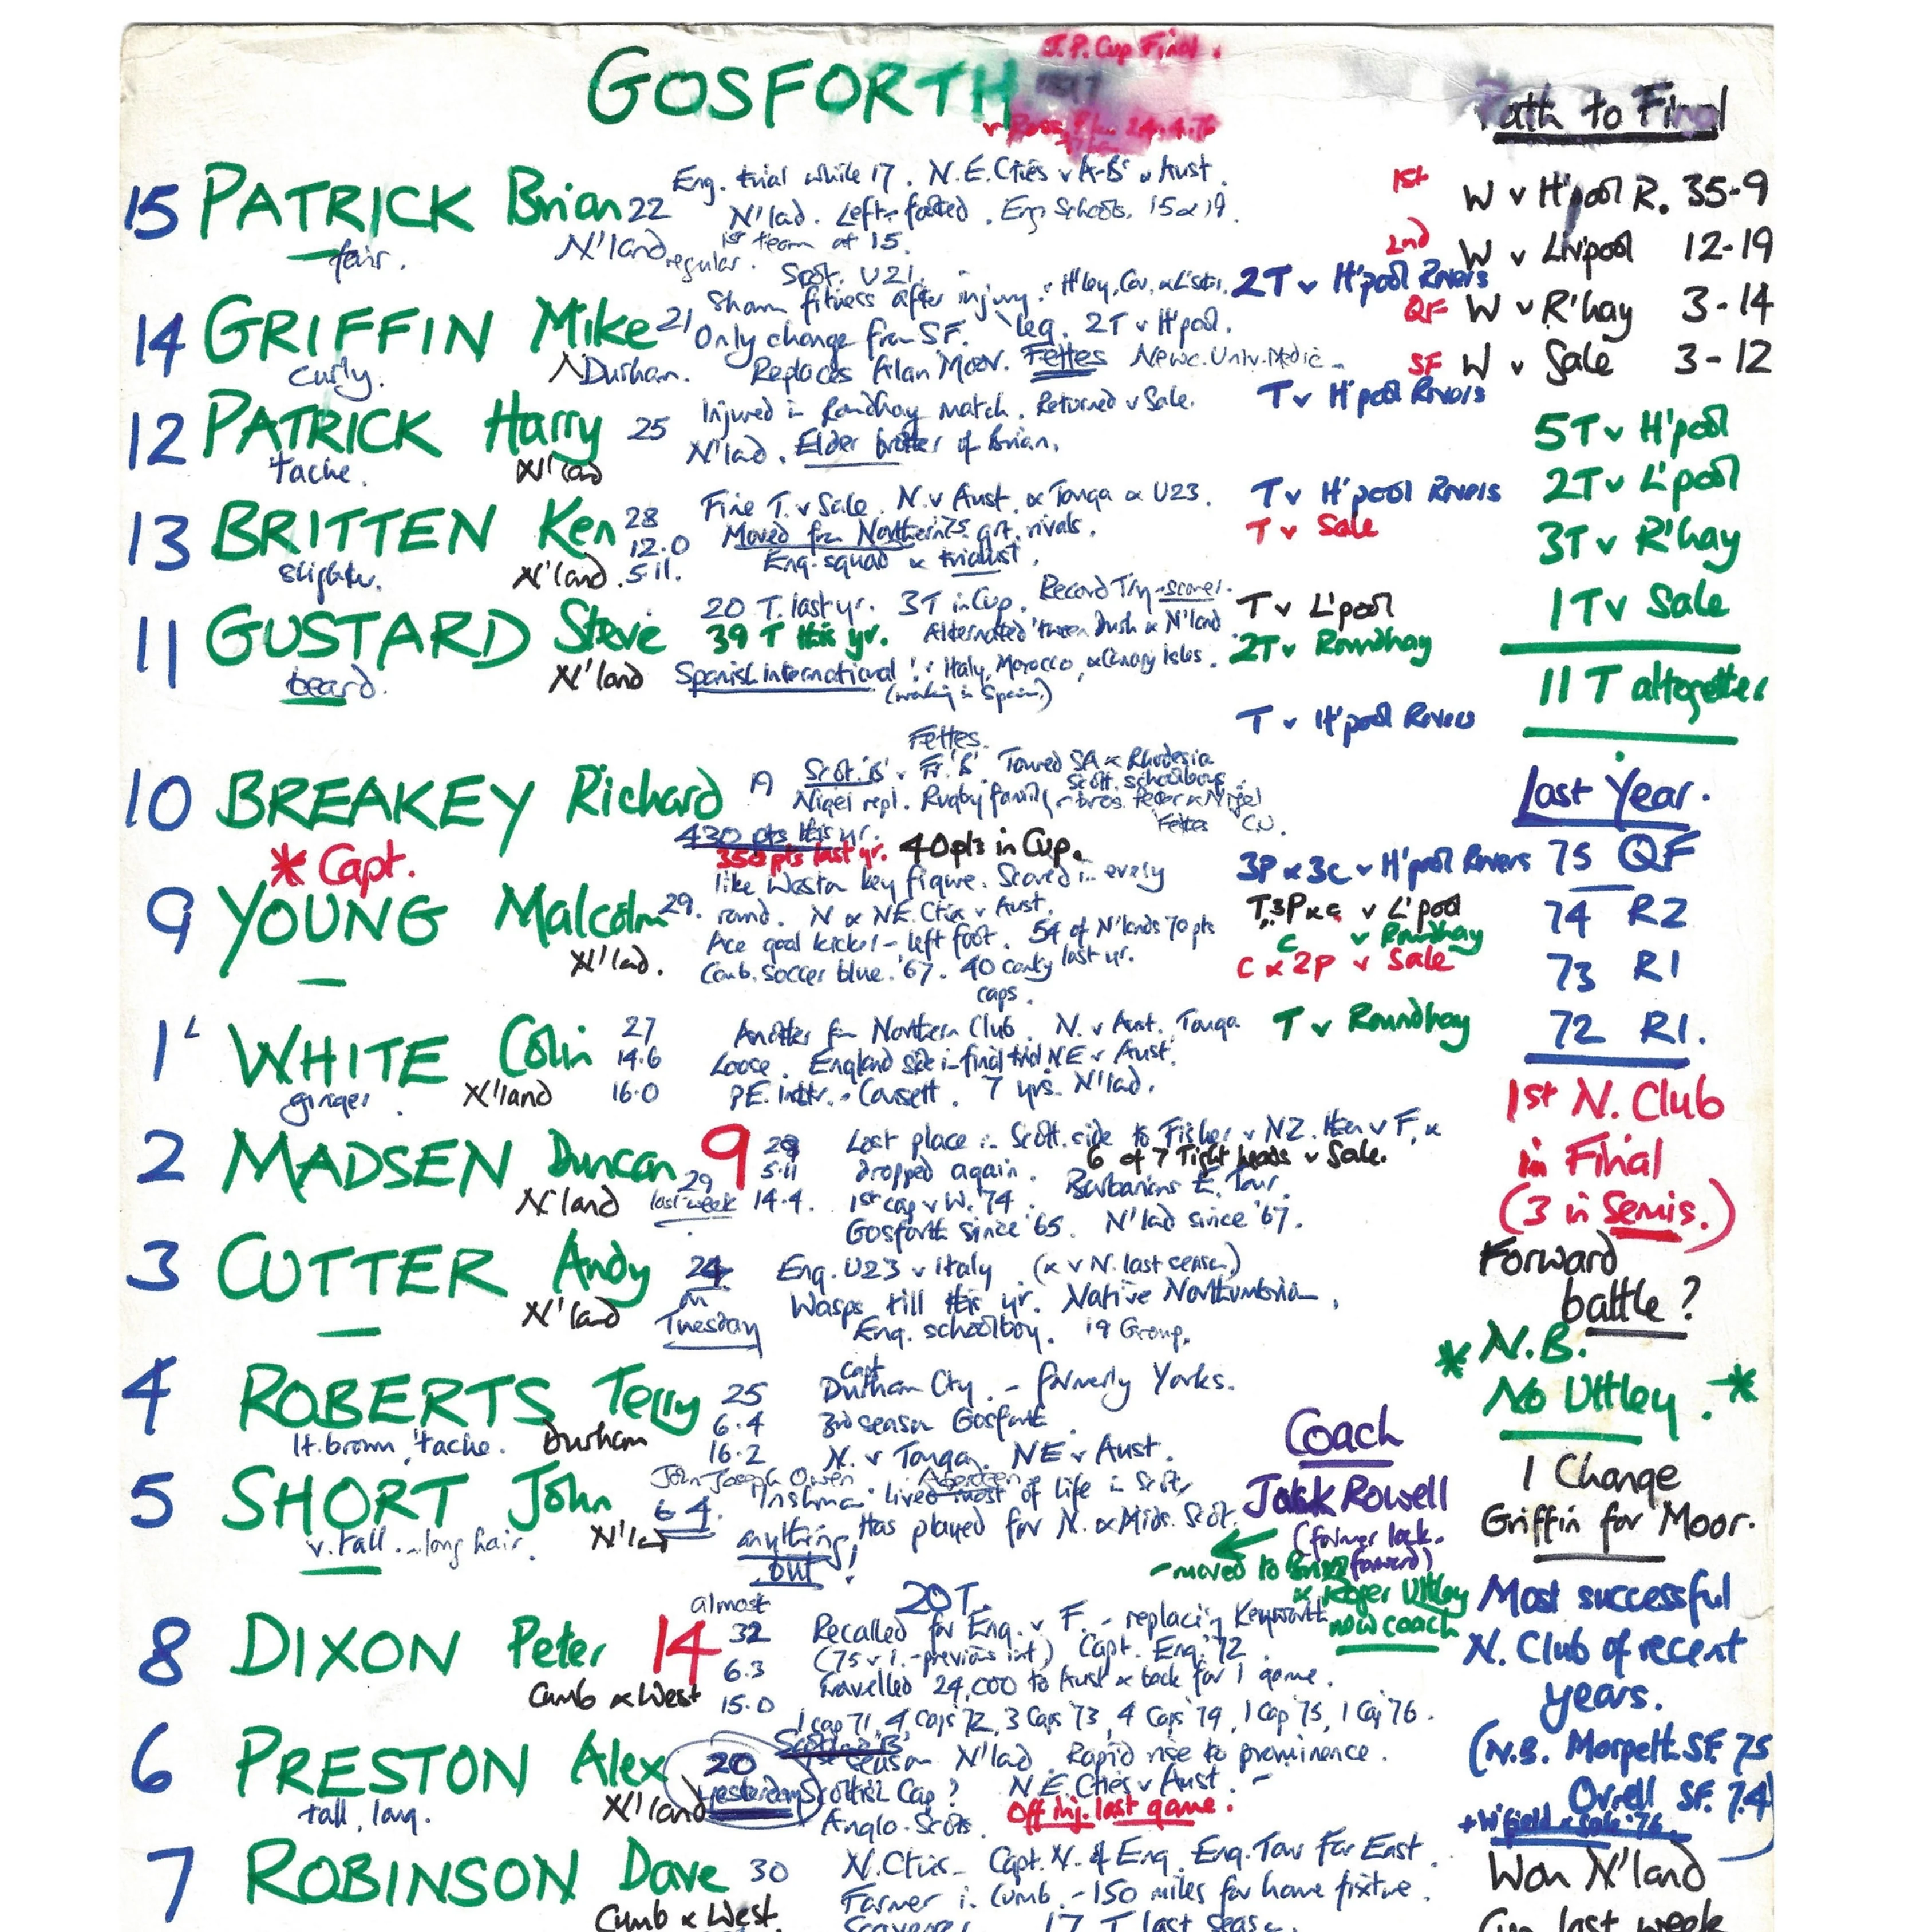 GOSFORTH
J.P. Cup Final.
Path to Final
15 PATRICK Brian 22
fair.
N'land regular.
Eng. trial while 17. N.E. Cties v A-B's v Aust.
N'lad. Left-footed. Eng Schools. 15 & 19.
1st team at 15.
1st W v H'pool R. 35-9
2nd W v Liv'pool 12-19
QF W v R'hay 3-14
SF W v Sale 3-12
14 GRIFFIN Mike 21
curly.
Durham.
Scot. U21.
Sham fitness after injury. leg. 2T v H'pool.
Only change from SF.
Replaces Alan Moor. Fettes Newc. Univ. Medic.
2T v H'pool Rovers
12 PATRICK Harry 25
'tache.
N'lad
Injured in Roundhay match. Returned v Sale.
N'lad. Elder brother of Brian.
T v H'pool Rovers
5T v H'pool
2T v L'pool
3T v R'hay
1T v Sale
11 T altogether
13 BRITTEN Ken 28
12.0
5.11.
slighter.
N'land.
Fine T. v Sale. N. v Aust. & Tonga & U23.
Moved from Northern grt. rivals.
Eng. squad & trialist.
T v H'pool Rovers
T v Sale
11 GUSTARD Steve
beard.
N'land
20 T. last yr. 3T in Cup. Record Try-scorer.
39 T this yr. Alternated 'tween Durh & N'land
Spanish international! v Italy, Morocco, & Canary Isles.
(working in Spain)
T v L'pool
2T v Roundhay
T v H'pool Rovers
10 BREAKEY Richard 19
Fettes.
Scot. 'B' v Fr. 'B'. Toured SA & Rhodesia
Scott. schoolboys.
Nigel repl. Rugby family - bros. Peter & Nigel
Fettes C.U.
Last Year.
75 QF
74 R2
73 R1
72 R1.
* Capt.
9 YOUNG Malcolm 29.
N'lad.
430 pts this yr.
350 pts last yr. 40 pts in Cup.
like Weston key figure. Scored in every
round. N & NE. Cties v Aust.
Ace goal kicker - left foot. 54 of N'lands 70 pts
last yr.
Camb. soccer blue. '67. 40 county
caps.
3P & 3c v H'pool Rovers
T, 3P & c v L'pool
c v Roundhay
c & 2P v Sale
1 L WHITE Colin 27
14.6
16.0
ginger.
N'land
Another from Northern Club. N. v Aust. Tonga
Loose. England side in final trial NE v Aust.
PE. instr. - Consett. 7 yrs. N'lad.
T v Roundhay
1st N. Club
in Final
(3 in Semis.)
2 MADSEN Duncan 9
N'land
29 last week
5.11
14.4.
Lost place in Scott. side to Fisher v NZ. then v F, &
dropped again. 6 of 7 Tight heads v Sale.
1st cap v W. '74. Barbarians E. Tour.
Gosforth since '65. N'lad since '67.
3 CUTTER Andy 24
on
Tuesday
N'land
Eng. U23 v Italy (& v N. last season)
Wasps till this yr. Native Northumbrian,
Eng. schoolboy. 19 Group.
Forward
battle?
* N.B.
No Uttley. *
4 ROBERTS Terry 25
6.4
16.2
lt. brown, 'tache.
Durham
Capt
Durham Cty. - formerly Yorks.
3rd season Gosforth
N. v Tonga. NE v Aust.
Coach
Jack Rowell
(former lock.
forward)
- moved to
& Roger Uttley
now coach
1 Change
Griffin for Moor.
5 SHORT John
v. tall. - long hair.
N'lad
John Joseph Owen
6 4.
anything
but!
Aberdeen
Irishman lived most of life in Scot.
Has played for N. & Mids. Scot.
Most successful
N. Club of recent
years.
(N.B. Morpeth. SF. 75
Orrell SF. 74)
8 DIXON Peter 14
Cumb & West
almost
32
6.3
15.0
20T.
Recalled for Eng. v F. - replacing Keyworth
(75 v I. - previous int) Capt. Eng. '72.
travelled 24,000 to Aust & back for 1 game.
1 cap 71, 4 Caps 72, 3 Caps '73, 4 Caps '74, 1 Cap 75, 1 Cap '76.
6 PRESTON Alex
tall, lang.
N'land
20
yesterday
Scotland 'B'
1st season N'lad. Rapid rise to prominence.
Scottish Cap? N.E. Cties v Aust. -
Anglo. Scots. Off inj. last game.
7 ROBINSON Dave 30
Cumb & West
N. Cties - Capt. N. & Eng. Eng. Tour Far East.
Farmer in Cumb. - 150 miles for home fixture.
17 T last season.
Won N'land
Cup last week